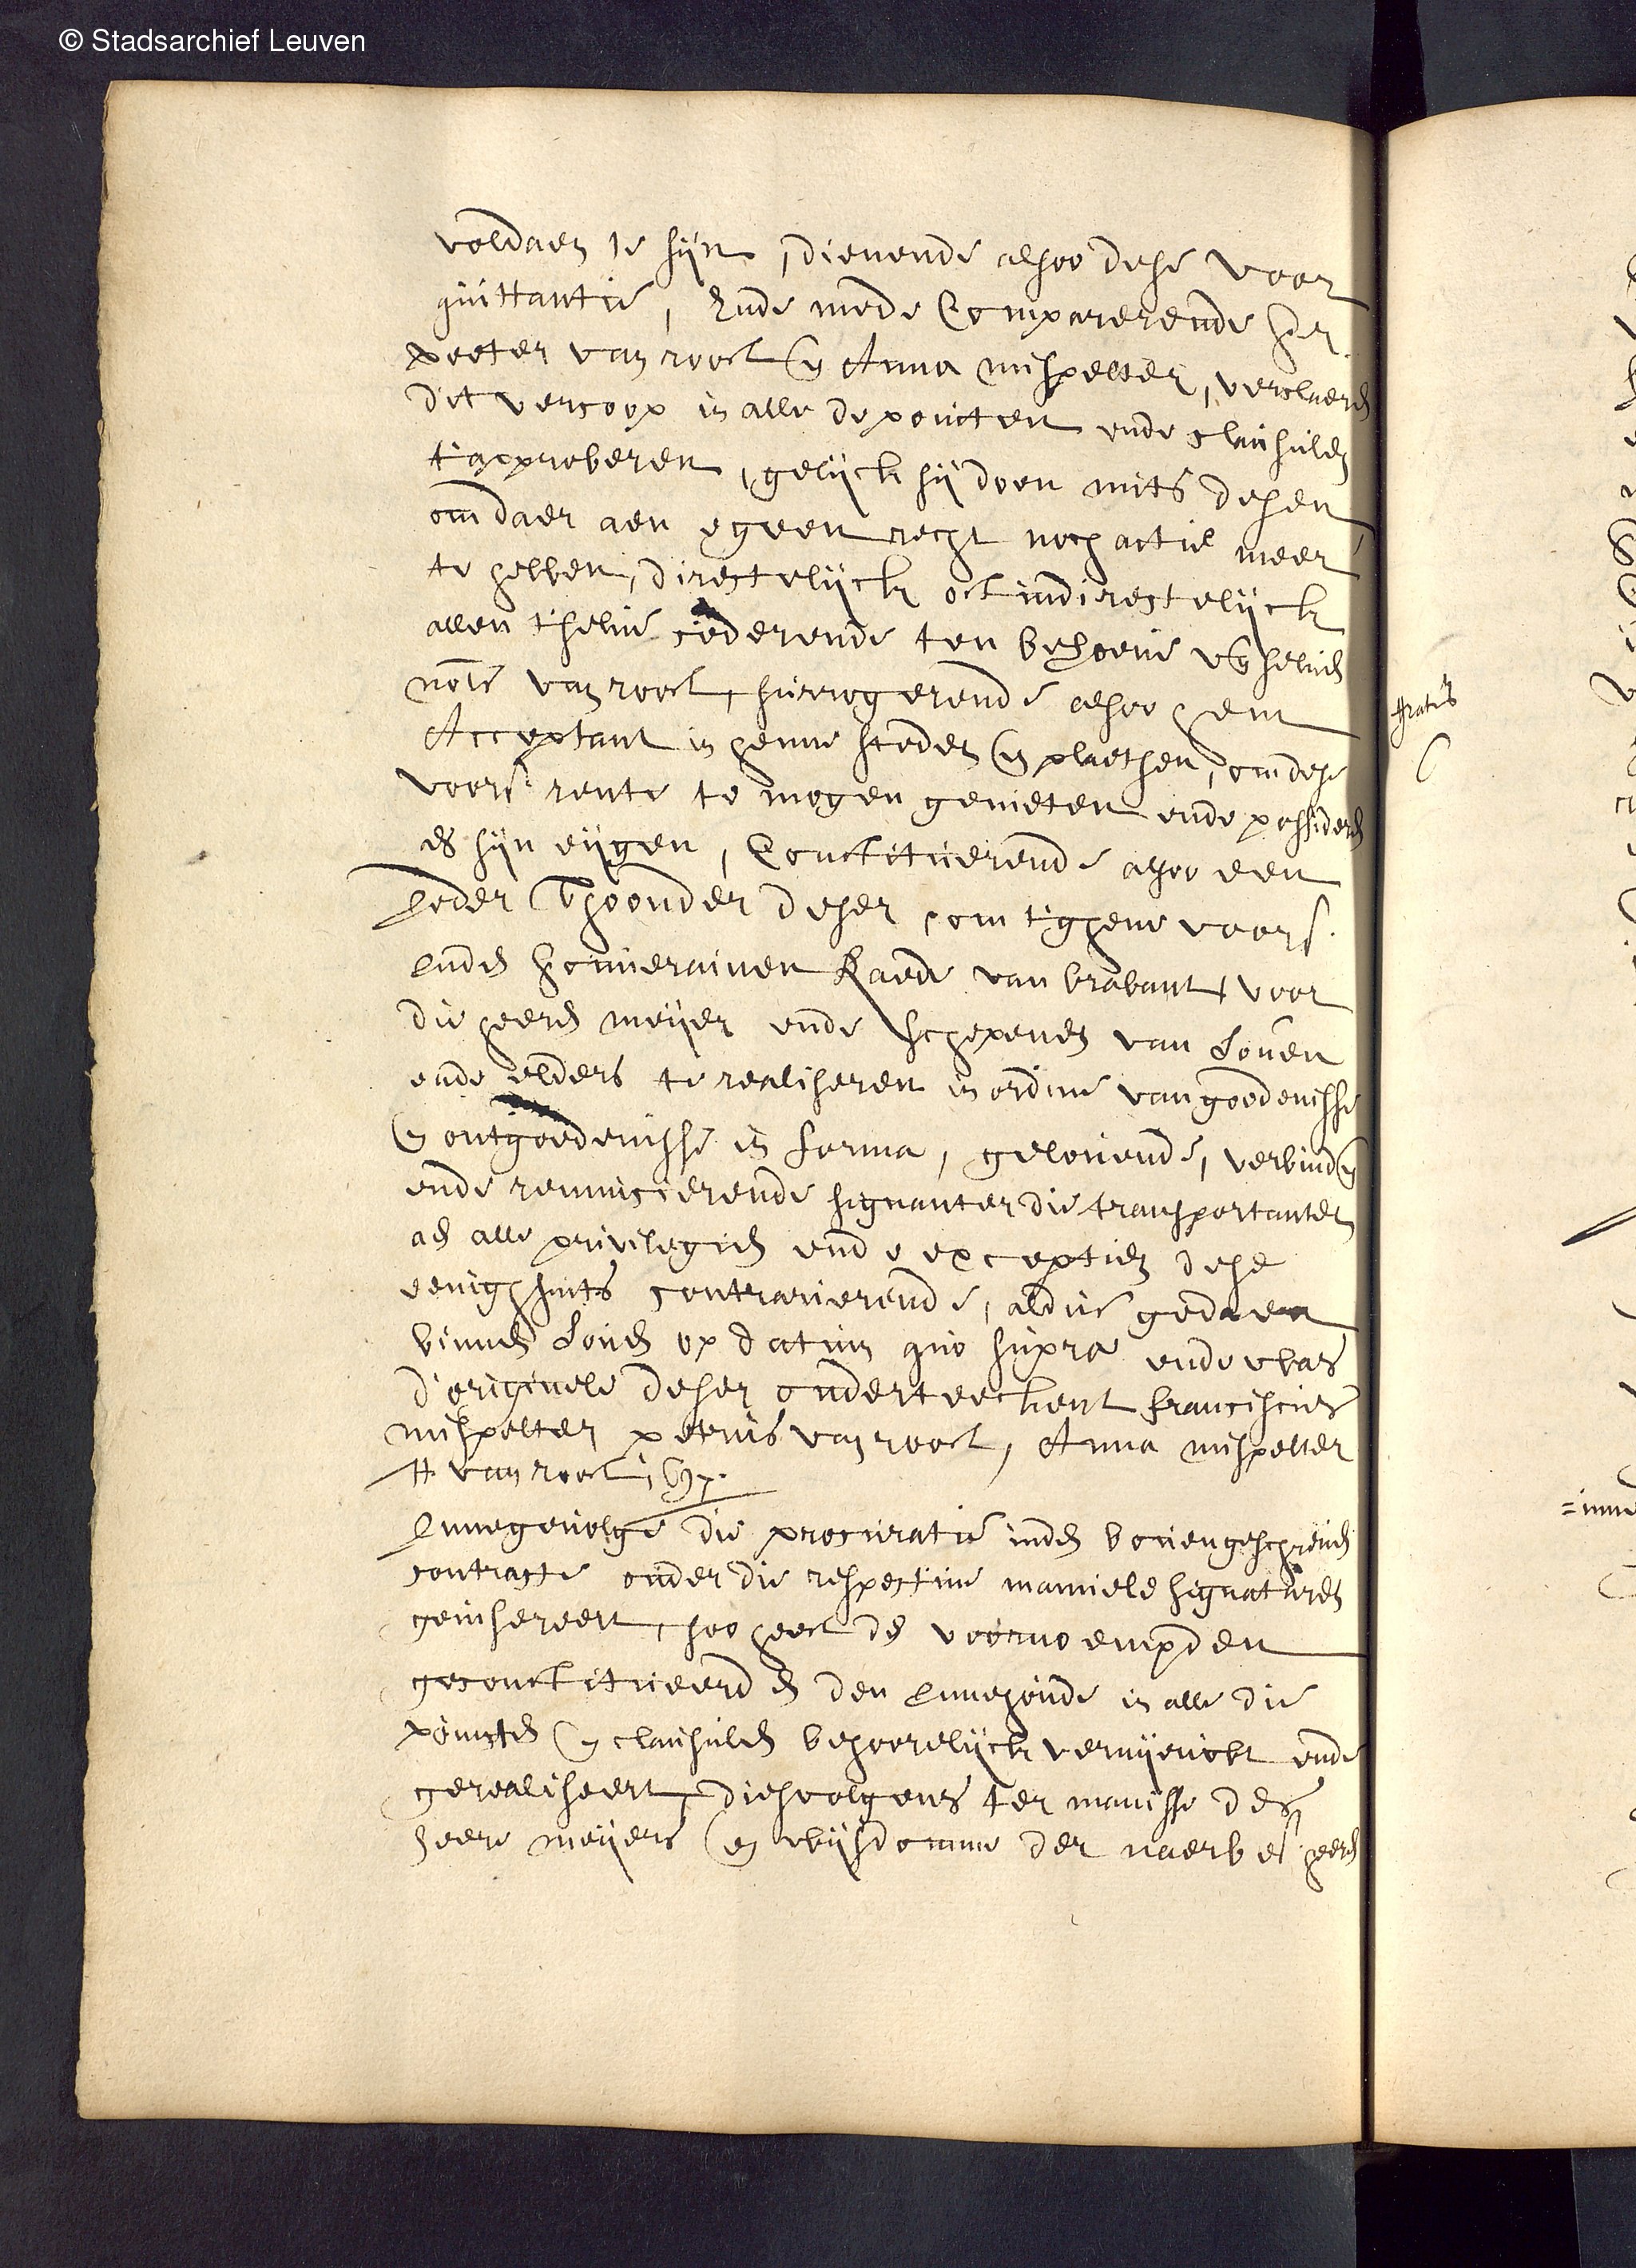 © Stadsarchief Leuven
voldaen te sijn, dienende alsoo dese voor
quittantie, Ende mede Comparerende Sr
peeter van roost en Anna mispelter, verclaeren
dit vercoop in alle de poincten ende clausulen
t'approberen, gelijck sij doen mits desen
om daer aen egeen recht noch actie meer
te hebben, directelijck oft indirectelijck
allen tselve cederende ten behoeve des selven
nots van roost, surrogerende alsoo hem
Acceptant in henne steden en plaetsen, om dese
voors. rente te mogen genieten ende possideren
als sijn eijgen, Constituerende alsoo een
Ieder Thoonder deser, om tighene voors.
Inden souverainen Raede van brabant, voor
die heeren meijer ende schepenen van Loven
ende elders te realiseren in ordine van goedenisse
en ontgoedenisse in forma, gelovende, verbinden
ende renuncierende signanter die transportanten
aen alle privilegien ende exceptien dese
eenighsints contrarierende, aldus gedaen
binnen Loven op datum quo supra ende was
d'originele deser onderteeckent franciscus
mispelter petrus van roost, Anna mispelter
H van roost,
Innegevolge die procuratie inden bovengeschreven
contracte onder die respective manuele signaturen
geinsereert, soo heeft de voornoempden
geconstitueerden den Innehoude in alle die
poincten en clausulen behoorelijck vernijeuwt ende
gerealiseert, diesvolgens ter manisse des
heere meijers en wijsdomme der naerbes. heeren
gratis